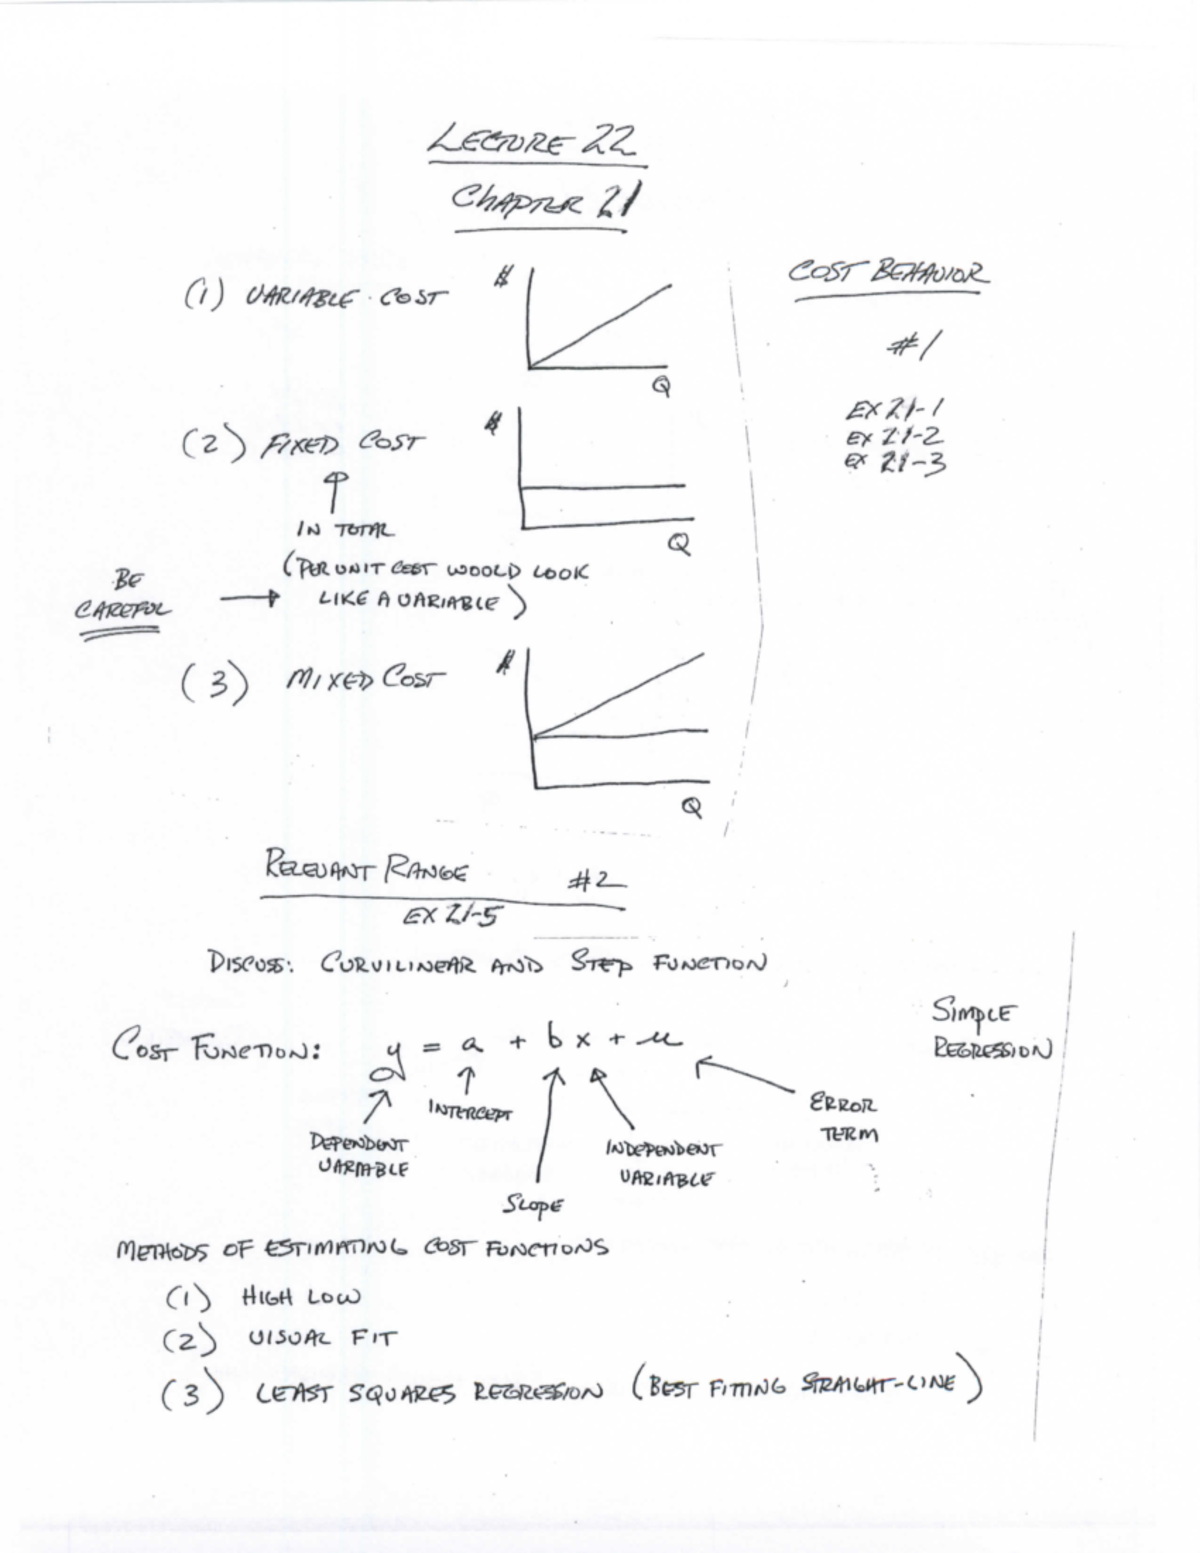 LECTURE 22
CHAPTER 21
COST BEHAVIOR
#1
EX 21-1
EX 21-2
EX 21-3
(1) VARIABLE COST
$
Q
(2) FIXED COST
$
Q
IN TOTAL
(PER UNIT COST WOULD LOOK
LIKE A VARIABLE)
BE
CAREFUL
(3) MIXED COST
$
Q
RELEVANT RANGE #2
EX 21-5
DISCUSS: CURVILINEAR AND STEP FUNCTION
SIMPLE
REGRESSION
COST FUNCTION: y = a + bx + u
INTERCEPT
DEPENDENT
VARIABLE
SLOPE
INDEPENDENT
VARIABLE
ERROR
TERM
METHODS OF ESTIMATING COST FUNCTIONS
(1) HIGH LOW
(2) VISUAL FIT
(3) LEAST SQUARES REGRESSION (BEST FITTING STRAIGHT-LINE)